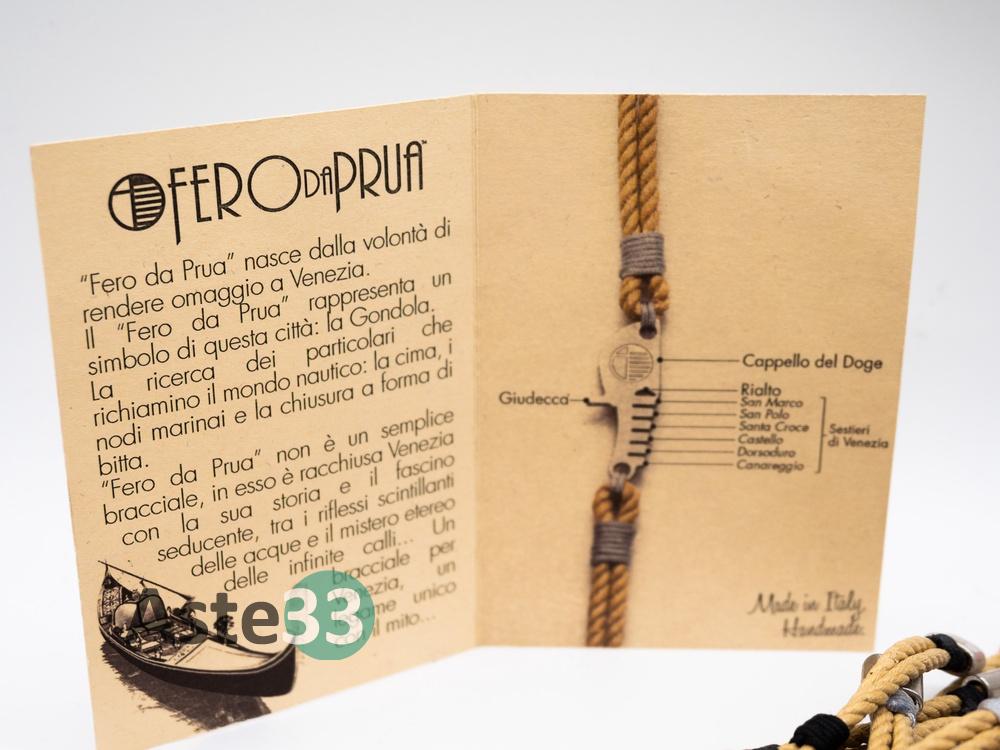 FERO DA PRUA™
“Fero da Prua” nasce dalla volontà di
rendere omaggio a Venezia.
Il “Fero da Prua” rappresenta un
simbolo di questa città: la Gondola.
La ricerca dei particolari che
richiamino il mondo nautico: la cima, i
nodi marinai e la chiusura a forma di
bitta.
“Fero da Prua” non è un semplice
bracciale, in esso è racchiusa Venezia
con la sua storia e il fascino
seducente, tra i riflessi scintillanti
delle acque e il mistero etereo
delle infinite calli... Un
bracciale per
Venezia, un
legame unico
il mito...
Aste33
Cappello del Doge
Giudecca
Rialto
San Marco
San Polo
Santa Croce
Castello
Dorsoduro
Canareggio
Sestieri
di Venezia
Made in Italy
Handmade.